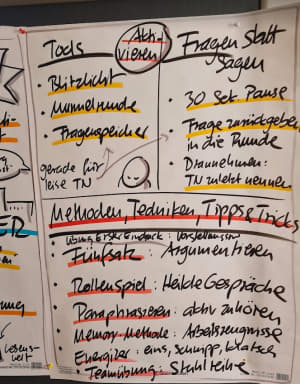 Tools
Akti-
vieren
Fragen statt
Sagen
• Blitzlicht
• Murmelrunde
• Fragenspeicher
gerade für
leise TN
• 30 Sek. Pause
• Frage zurückgeben
in die Runde
• Drannehmen:
TN zuletzt nennen
Methoden, Techniken, Tipps & Tricks
• Übung Erster Eindruck: Vorstellung
• Fünfsatz: Argumentieren
• Rollenspiel: Heikle Gespräche
• Paraphrasieren: aktiv zuhören
• Memory-Methode: Arbeitszeugnisse
• Energizer: eins, schnipp, klatsch
• Teamübung: Stuhlreihe